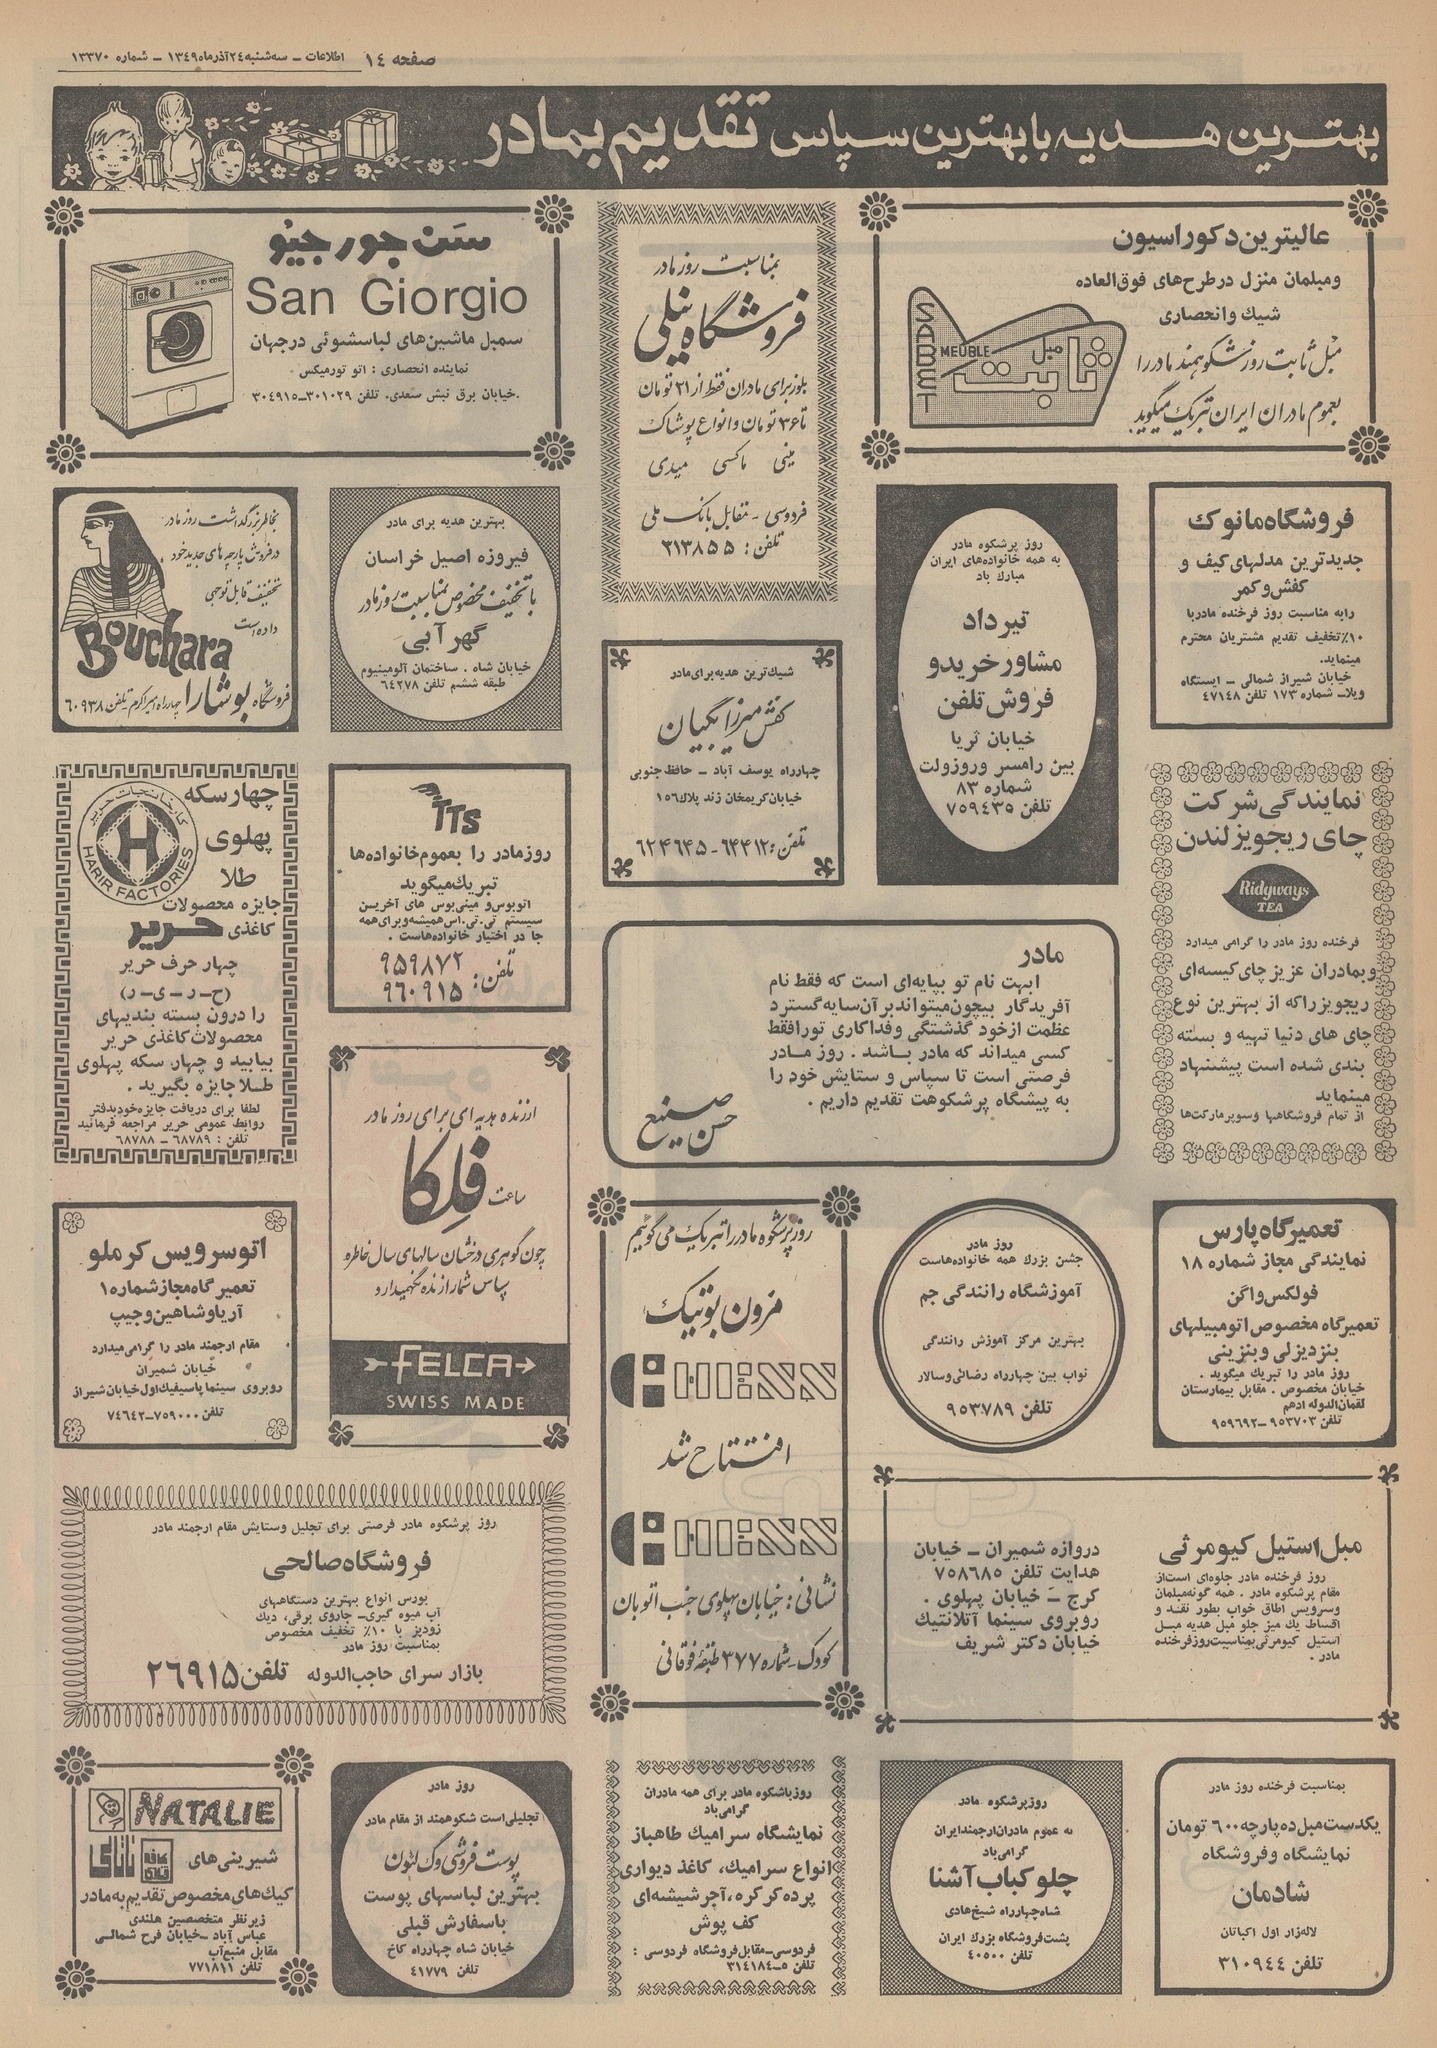 صفحه ١٤ اطلاعات - سه‌شنبه ٢٤ آذرماه ١٣٤٩ - شماره ١٣٣٧٠
بهترین هدیه با بهترین سپاس تقدیم بمادر
عالیترین دکوراسیون
و مبلمان منزل در طرح‌های فوق‌العاده
شیك وانحصاری
مبل ثابت روز شکوهمند مادر را
بعموم مادران ایران تبریک میگوید.
SABET
MEUBLE
مبل
ثابت
بمناسبت روز مادر
فروشگاه نیلی
بلوز برای مادران فقط از ٢١ تومان
تا ٣۶ تومان و انواع پوشاک
مینی ماکسی میدی
فردوسی - مقابل بانک ملی
تلفن: ٣١٣٨۵۵
سن جورجیو
San Giorgio
سمبل ماشین‌های لباسشوئی درجهان
نماینده انحصاری : اتو تورمیکس
خیابان برق نبش سعدی. تلفن ٣٠١٠٢٩-٣٠٤٩١۵
فروشگاه مانوك
جدیدترین مدلهای کیف و
کفش و کمر
رابه مناسبت روز فرخنده مادر با
١٠٪ تخفیف تقدیم مشتریان محترم
مینماید.
خیابان شیراز شمالی - ایستگاه
ویلا- شماره ١٧٣ تلفن ٤٧١٤٨
روز پرشکوه مادر
به همه خانواده‌های ایران
مبارك باد
تیرداد
مشاور خرید و
فروش تلفن
خیابان ثریا
بین رامسر و روزولت
شماره ٨٣
تلفن ٧۵٩٤٣۵
بهترین هدیه برای مادر
فیروزه اصیل خراسان
با تخفیف مخصوص بمناسبت روز مادر
گهر آبی
خیابان شاه . ساختمان آلومینیوم
طبقه ششم تلفن ۶٤٢٧٨
بخاطر بزرگداشت روز مادر
در فروش پارچه های جدید خود
تخفیف قابل توجهی
داده است
Bouchara
فروشگاه بوشارا چهارراه امیراکرم تلفن ۶٠٩٣٨
شیك‌ترین هدیه برای مادر
کفش میرزابگیان
چهارراه یوسف آباد - حافظ جنوبی
خیابان کریمخان زند پلاك ١۵۶
تلفن: ۶٤٤١٢-۶٢٤۶٤۵
نمایندگی شرکت
چای ریجویز لندن
Ridgways
TEA
فرخنده روز مادر را گرامی میدارد
و بمادران عزیز چای کیسه‌ای
ریجویز راکه از بهترین نوع
چای های دنیا تهیه و بسته
بندی شده است پیشنهاد
مینماید
از تمام فروشگاهها و سوپرمارکت‌ها
مادر
ابهت نام تو بپایه‌ای است که فقط نام
آفریدگار بیچون میتواند بر آن سایه گسترد
عظمت ازخود گذشتگی وفداکاری تورا فقط
کسی میداند که مادر باشد . روز مادر
فرصتی است تا سپاس و ستایش خود را
به پیشگاه پرشکوهت تقدیم داریم .
حسن صنیع
TTS
روزمادر را بعموم خانواده‌ها
تبریك میگوید
اتوبوس و مینی‌بوس های آخرین
سیستم تی.تی.اس همیشه و برای همه
جا در اختیار خانواده‌هاست .
تلفن: ٩۵٩٨٧٢
٩۶٠٩١۵
چهار سکه
پهلوی
طلا
کارخانجات حریر
HARIR FACTORIES
جایزه محصولات
کاغذی حریر
چهار حرف حریر
(ح-ر-ی-ر)
را درون بسته بندیهای
محصولات کاغذی حریر
بیابید و چهار سکه پهلوی
طلا جایزه بگیرید .
لطفا برای دریافت جایزه خود بدفتر
روابط عمومی حریر مراجعه فرمائید
تلفن : ۶٨٧٨٩ - ۶٨٧٨٨
ارزنده هدیه ای برای روز مادر
ساعت فلکا
چون گوهری درخشان سالهای سال خاطره
سپاس شما را زنده نگهمیدارد
FELCA
SWISS MADE
تعمیرگاه پارس
نمایندگی مجاز شماره ١٨
فولکس واگن
تعمیرگاه مخصوص اتومبیلهای
بنز دیزلی و بنزینی
روز مادر را تبریك میگوید .
خیابان مخصوص . مقابل بیمارستان
لقمان‌الدوله ادهم
تلفن ٩۵٣٧٠٣-٩۵٩۶٩٢
روز مادر
جشن بزرك همه خانواده‌هاست
آموزشگاه رانندگی جم
بهترین مرکز آموزش رانندگی
نواب بین چهارراه رضائی وسالار
تلفن ٩۵٣٧٨٩
روز پرشکوه مادر را تبریک می گوئیم
مزون بوتیک
افتتاح شد
نشانی: خیابان پهلوی جنب اتوبان
کودک - شماره ٣٧٧ طبقه فوقانی
اتوسرویس کرملو
تعمیرگاه مجاز شماره ١
آریا و شاهین و جیپ
مقام ارجمند مادر را گرامی میدارد
خیابان شمیران
روبروی سینما پاسیفیك اول خیابان شیراز
تلفن ٧۵٩٠٠٠-٧٤۶٤٢
مبل استیل کیومرثی
روز فرخنده مادر جلوه‌ای است از
مقام پرشکوه مادر . همه گونه مبلمان
وسرویس اطاق خواب بطور نقد و
اقساط یك میز جلو مبل هدیه مبل
استیل کیومرثی بمناسبت روز فرخنده
مادر .
دروازه شمیران - خیابان
هدایت تلفن ٧۵٨۶٨۵
کرج - خیابان پهلوی .
روبروی سینما آتلانتیك
خیابان دکتر شریف
روز پرشکوه مادر فرصتی برای تجلیل وستایش مقام ارجمند مادر
فروشگاه صالحی
بورس انواع بهترین دستگاههای
آب میوه گیری- جاروی برقی، دیك
زودپز با ١٠٪ تخفیف مخصوص
بمناسبت روز مادر
بازار سرای حاجب‌الدوله تلفن ٢۶٩١۵
بمناسبت فرخنده روز مادر
یکدست مبل ده پارچه ۶٠٠ تومان
نمایشگاه و فروشگاه
شادمان
لاله‌زار اول اکباتان
تلفن ٣١٠٩٤٤
روز پرشکوه مادر
به عموم مادران ارجمند ایران
گرامی‌باد
چلوکباب آشنا
شاه چهارراه شیخ‌هادی
پشت فروشگاه بزرك ایران
تلفن ٤٠۵٠٠
روز باشکوه مادر برای همه مادران
گرامی‌باد
نمایشگاه سرامیك طاهباز
انواع سرامیك، کاغذ دیواری
پرده کرکره، آجر شیشه‌ای
کف پوش
فردوسی-مقابل فروشگاه فردوسی :
تلفن ۵-٣١٤١٨٤
روز مادر
تجلیلی است شکوهمند از مقام مادر
پوست فروشی وگ لیون
بهترین لباسهای پوست
باسفارش قبلی
خیابان شاه چهارراه کاخ
تلفن ٤١٧٧٩
NATALIE
کافه
قنادی
ناتالی
شیرینی‌های
کیك‌های مخصوص تقدیم به مادر
زیرنظر متخصصین هلندی
عباس آباد - خیابان فرح شمالی
مقابل منبع‌آب
تلفن ٧٧١٨١١